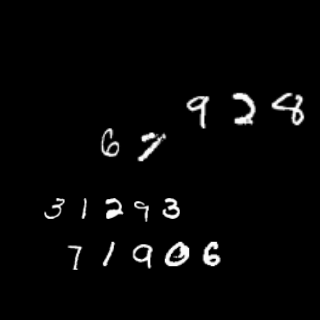 928
67
31293
71906